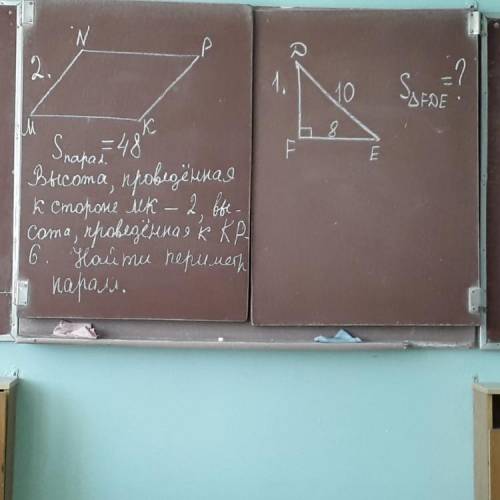 2.
N
P
M
K
Sпарал. = 48
Высота, проведённая
к стороне МК – 2, вы-
сота, проведённая к КР-
6. Найти периметр
парал.
1.
D
10
8
F
E
S△FDE = ?